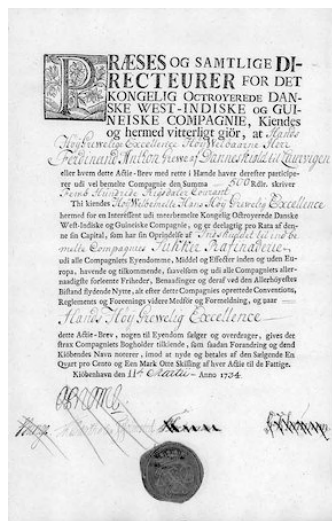 PRÆSES OG SAMTLIGE DI-
RECTEURER FOR DET
KONGELIG OCTROYEREDE DAN-
SKE WEST-INDISKE OG GUI-
NEISKE COMPAGNIE, Kiendes
og hermed vitterligt giör, at Hands
HöyGrewelige Excellence HöyWelbaarne Herr
Ferdinand Anthon Grewe af Danneskiold til Laurvigen
eller hvem dette Actie-Brev med rette i Hænde haver derefter participe-
rer udi vel bemelte Compagnie den Summa 500 Rdlr. skriver
Fem Hundrede Rigsdaler Courant
Thi kiendes HöyWelbemelte Hans Höy Grewelig Excellence
hermed for en Interessent udi meerbemelte Kongelig Octroyerede Danske
West-Indiske og Guineiske Compagnie, og er deelagtig pro Rata af den-
ne sin Capital, som har sin Oprindelse af
melte Compagnies Sukker Rafinaderie
udi alle Compagniets Eyendomme, Middel og Effecter inden og uden Eu-
ropa, havende og tilkommende, saavelsom og udi alle Compagniets aller-
naadigste forleente Friheder, Benaadninger og deraf ved den Allerhöyestes
Bistand flydende Nytte, alt efter dette Compagnies oprettede Conventions,
Reglements og Foreenings videre Medfør og Formelding, og naar
Hands Höy Grewelig Excellence
dette Actie-Brev, nogen til Eyendom sælger og overdrager, gives det
strax Compagniets Bogholder tilkiende, som saadan Forandring og dend
Kiöbendes Navn noterer, imod at nyde og betales af den Sælgende En
Qvart pro Cento og Een Mark Otte Skilling af hver Actie til de Fattige.
Kiöbenhavn den 11te Martii Anno 1734